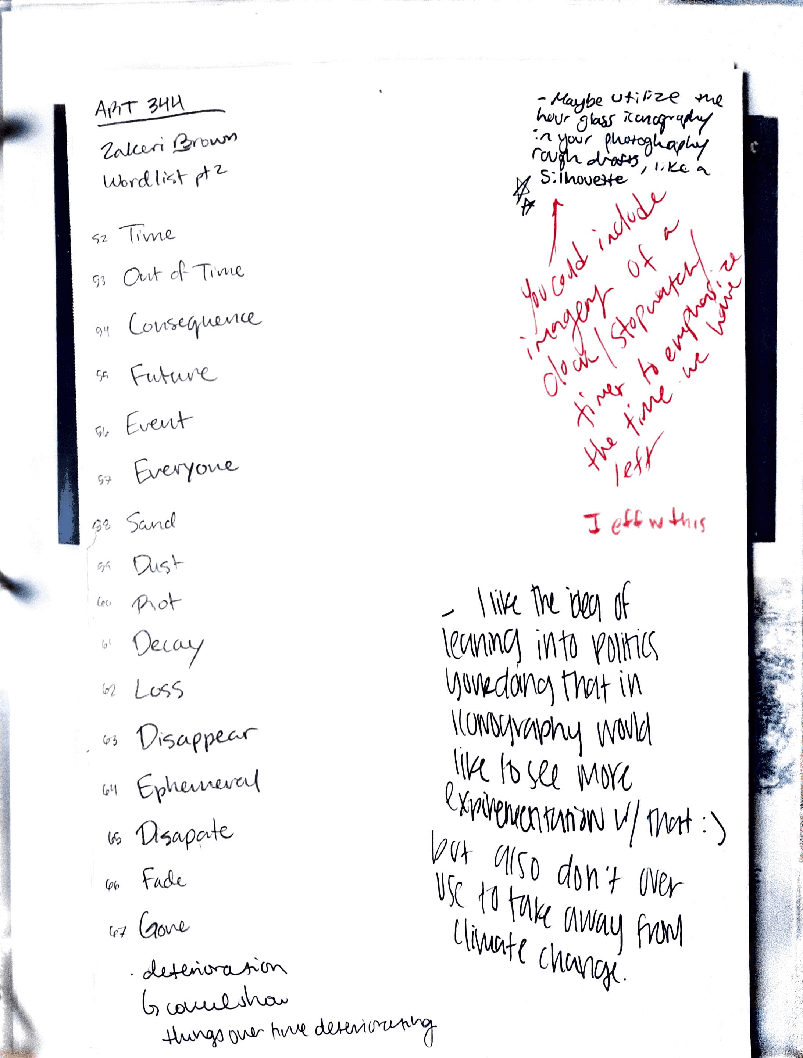 ART 344
Zakeri Brown
Wordlist pt 2
52 Time
53 Out of Time
54 Consequence
55 Future
56 Event
57 Everyone
58 Sand
59 Dust
60 Rot
61 Decay
62 Loss
63 Disappear
64 Ephemeral
65 Disapate
66 Fade
67 Gone
· deterioration
↳ could show
things over time deteriorating
- Maybe utilize the
hour glass iconography
in your photoghaphy
rough drafts, like a
Silhouette
You could include
imagery of a
clock/stopwatch/
timer to emphasize
the time we have
left
I eff w this
- I like the idea of
leaning into politics
you're doing that in
iconography would
like to see more
expirementation w/ that :)
but also don't over
use to take away from
climate change.